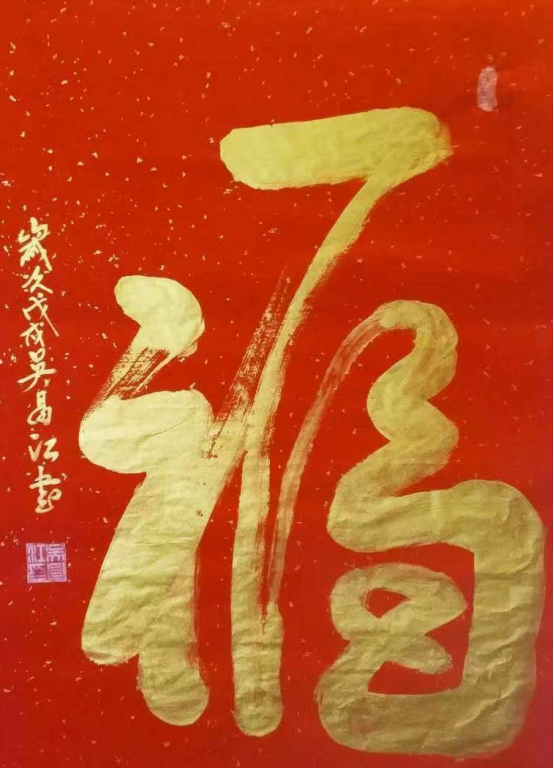 福
歲次戊戌吴昌江書